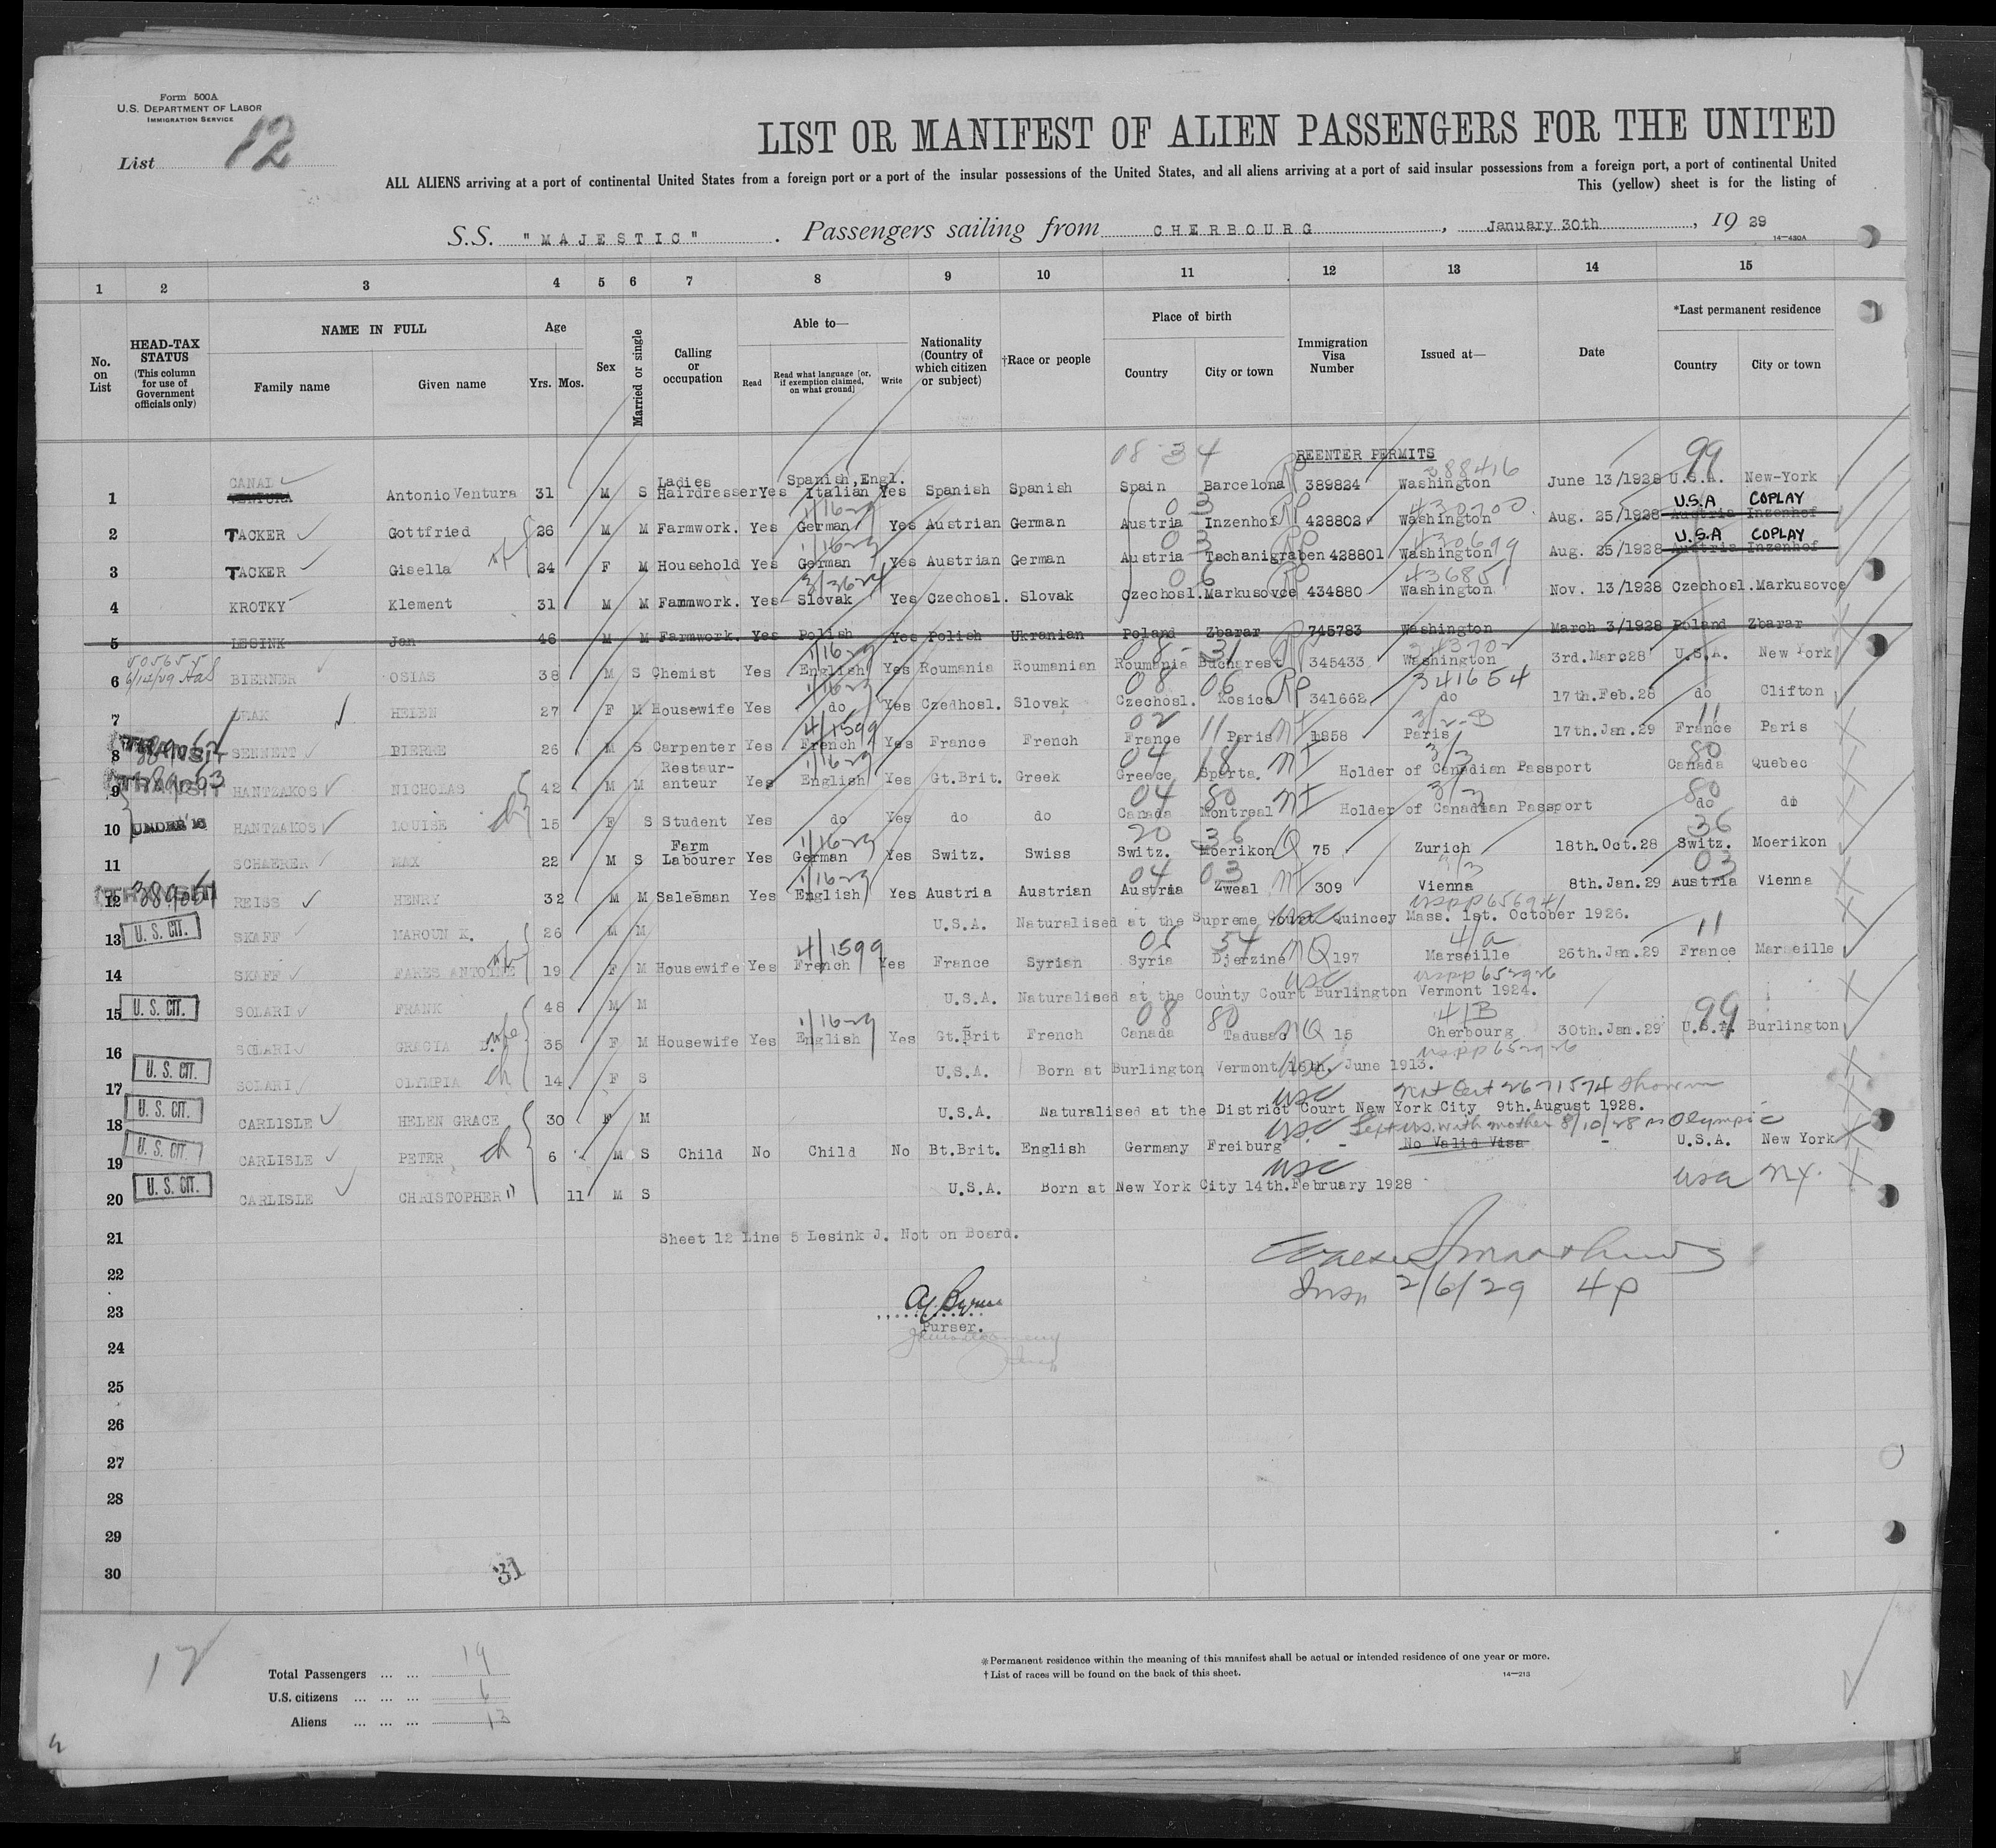 Form 500A
U.S. DEPARTMENT OF LABOR
IMMIGRATION SERVICE
List 12
LIST OR MANIFEST OF ALIEN PASSENGERS FOR THE UNITED
ALL ALIENS arriving at a port of continental United States from a foreign port or a port of the insular possessions of the United States, and all aliens arriving at a port of said insular possessions from a foreign port, a port of continental United
This (yellow) sheet is for the listing of
S.S. "MAJESTIC". Passengers sailing from CHERBOURG, January 30th, 1929
14—430A
1 2 3 4 5 6 7 8 9 10 11 12 13 14 15
No. on List
HEAD-TAX STATUS (This column for use of Government officials only)
NAME IN FULL
Family name
Given name
Age
Yrs. Mos.
Sex
Married or single
Calling or occupation
Able to—
Read
Read what language [or, if exemption claimed, on what ground]
Write
Nationality (Country of which citizen or subject)
†Race or people
Place of birth
Country
City or town
Immigration Visa Number
Issued at—
Date
*Last permanent residence
Country
City or town
08 34 REENTER PERMITS 388416 99
1 CANAD VENTURA Antonio Ventura 31 M S Ladies Hairdresser Yes Spanish, Engl. Italian Yes Spanish Spanish Spain Barcelona RP 389824 Washington June 13/1928 U.S.A. New-York
1/16-29 03 430700 U.S.A COPLAY
2 TACKER Gottfried 26 M M Farmwork. Yes German Yes Austrian German Austria Inzenhof RP 428802 Washington Aug. 25/1928 Austria Inzenhof
1/16-29 03 430699 U.S.A COPLAY
3 TACKER Gisella 24 F M Household Yes German Yes Austrian German Austria Tschanigraben 428801 Washington Aug. 25/1928 Austria Inzenhof
06 436851
4 KROTKY Klement 31 M M Farmwork. Yes Slovak Yes Czechosl. Slovak Czechosl. Markusovce RP 434880 Washington Nov. 13/1928 Czechosl. Markusovce
5 LESINK Jan 46 M M Farmwork. Yes Polish Yes Polish Ukranian Poland Zbarar 745783 Washington March 3/1928 Poland Zbarar
1/16-29 08 31
6 BIERNER OSIAS 38 M S Chemist Yes English Yes Roumania Roumanian Roumania Bucharest RP 345433 Washington 3rd.Marc28 U.S.A. New York
1/16-29 08 06 341654
7 DEAK HELEN 27 F M Housewife Yes do Yes Czedhosl. Slovak Czechosl. Kosice RP 341662 do 17th.Feb.28 do Clifton
4/1599 02 11 3/2-B 11
8 TRANSIT SENNETT PIERRE 26 M S Carpenter Yes French Yes France French France Paris 1858 Paris 17th.Jan.29 France Paris
1/16-29 04 18 3/3 80
9 TRANSIT HANTZAKOS NICHOLAS 42 M M Restauranteur Yes English Yes Gt.Brit. Greek Greece Sparta. Holder of Canadian Passport Canada Quebec
04 80 80
10 UNDER 16 HANTZAKOS LOUISE ch 15 F S Student Yes do Yes do do Canada Montreal Holder of Canadian Passport do do
1/16-29 20 36 36
11 SCHAERER MAX 22 M S Farm Labourer Yes German Yes Switz. Swiss Switz. Moerikon Q 75 Zurich 18th.Oct.28 Switz. Moerikon
1/16-29 04 03 3/3 03
12 TRANSIT REISS HENRY 32 M M Salesman Yes English Yes Austria Austrian Austria Zweal 309 Vienna 8th.Jan.29 Austria Vienna
uspp 656941
13 U.S. CIT. SKAFF MAROUN K. 26 M M U.S.A. Naturalised at the Supreme Court Quincey Mass. 1st. October 1926.
4/1599 4/a 11
14 SKAFF FARES ANTOINE wfe 19 F M Housewife Yes French Yes France Syrian Syria Djerzine NQ 197 Marseille 26th.Jan.29 France Marseille
usc uspp 652926
15 U.S. CIT. SOLARI FRANK 48 M M U.S.A. Naturalised at the County Court Burlington Vermont 1924.
1/16-29 08 80 4/B 99
16 SOLARI GRACIA D. wfe 35 F M Housewife Yes English Yes Gt.Brit French Canada Tadusac NQ 15 Cherbourg 30th.Jan.29 U.S.A. Burlington
uspp 652926
17 U.S. CIT. SOLARI OLYMPIA ch 14 F S U.S.A. Born at Burlington Vermont 18th. June 1913.
usc Nat Cert 2671574 shown
18 U.S. CIT. CARLISLE HELEN GRACE 30 F M U.S.A. Naturalised at the District Court New York City 9th.August 1928.
usc Left US. with mother 8/10/28 on Olympic
19 U.S. CIT. CARLISLE PETER ch 6 M S Child No Child No Bt.Brit. English Germany Freiburg - No Valid Visa - U.S.A. New York
usc
20 U.S. CIT. CARLISLE CHRISTOPHER 11 M S U.S.A. Born at New York City 14th.February 1928 usa NY.
21 Sheet 12 Line 5 Lesink J. Not on Board.
22
Insp 2/6/29 4P
23
Purser.
24
25
26
27
28
29
30
31
12
Total Passengers ... ... 19
U.S. citizens ... ... ... 6
Aliens ... ... ... 13
*Permanent residence within the meaning of this manifest shall be actual or intended residence of one year or more.
†List of races will be found on the back of this sheet.
14—213